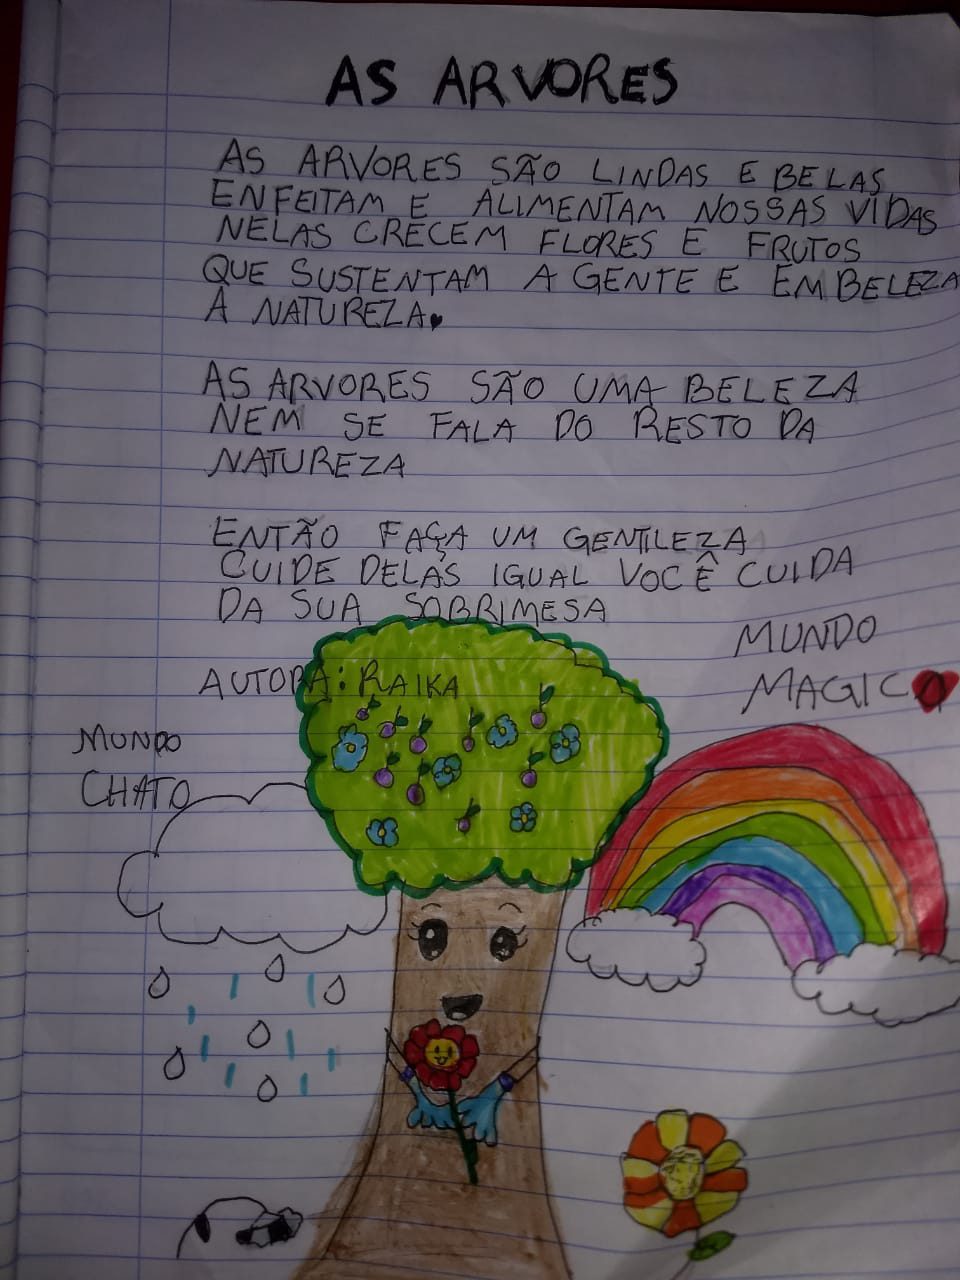 AS ARVORES
AS ARVORES SÃO LINDAS E BELAS
ENFEITAM E ALIMENTAM NOSSAS VIDAS
NELAS CRECEM FLORES E FRUTOS
QUE SUSTENTAM A GENTE E EMBELEZA
A NATUREZA.
AS ARVORES SÃO UMA BELEZA
NEM SE FALA DO RESTO DA
NATUREZA
ENTÃO FAÇA UM GENTILEZA
CUIDE DELAS IGUAL VOCÊ CUIDA
DA SUA SOBRIMESA
AUTORA: RAIKA
MUNDO
MAGICO
MUNDO
CHATO